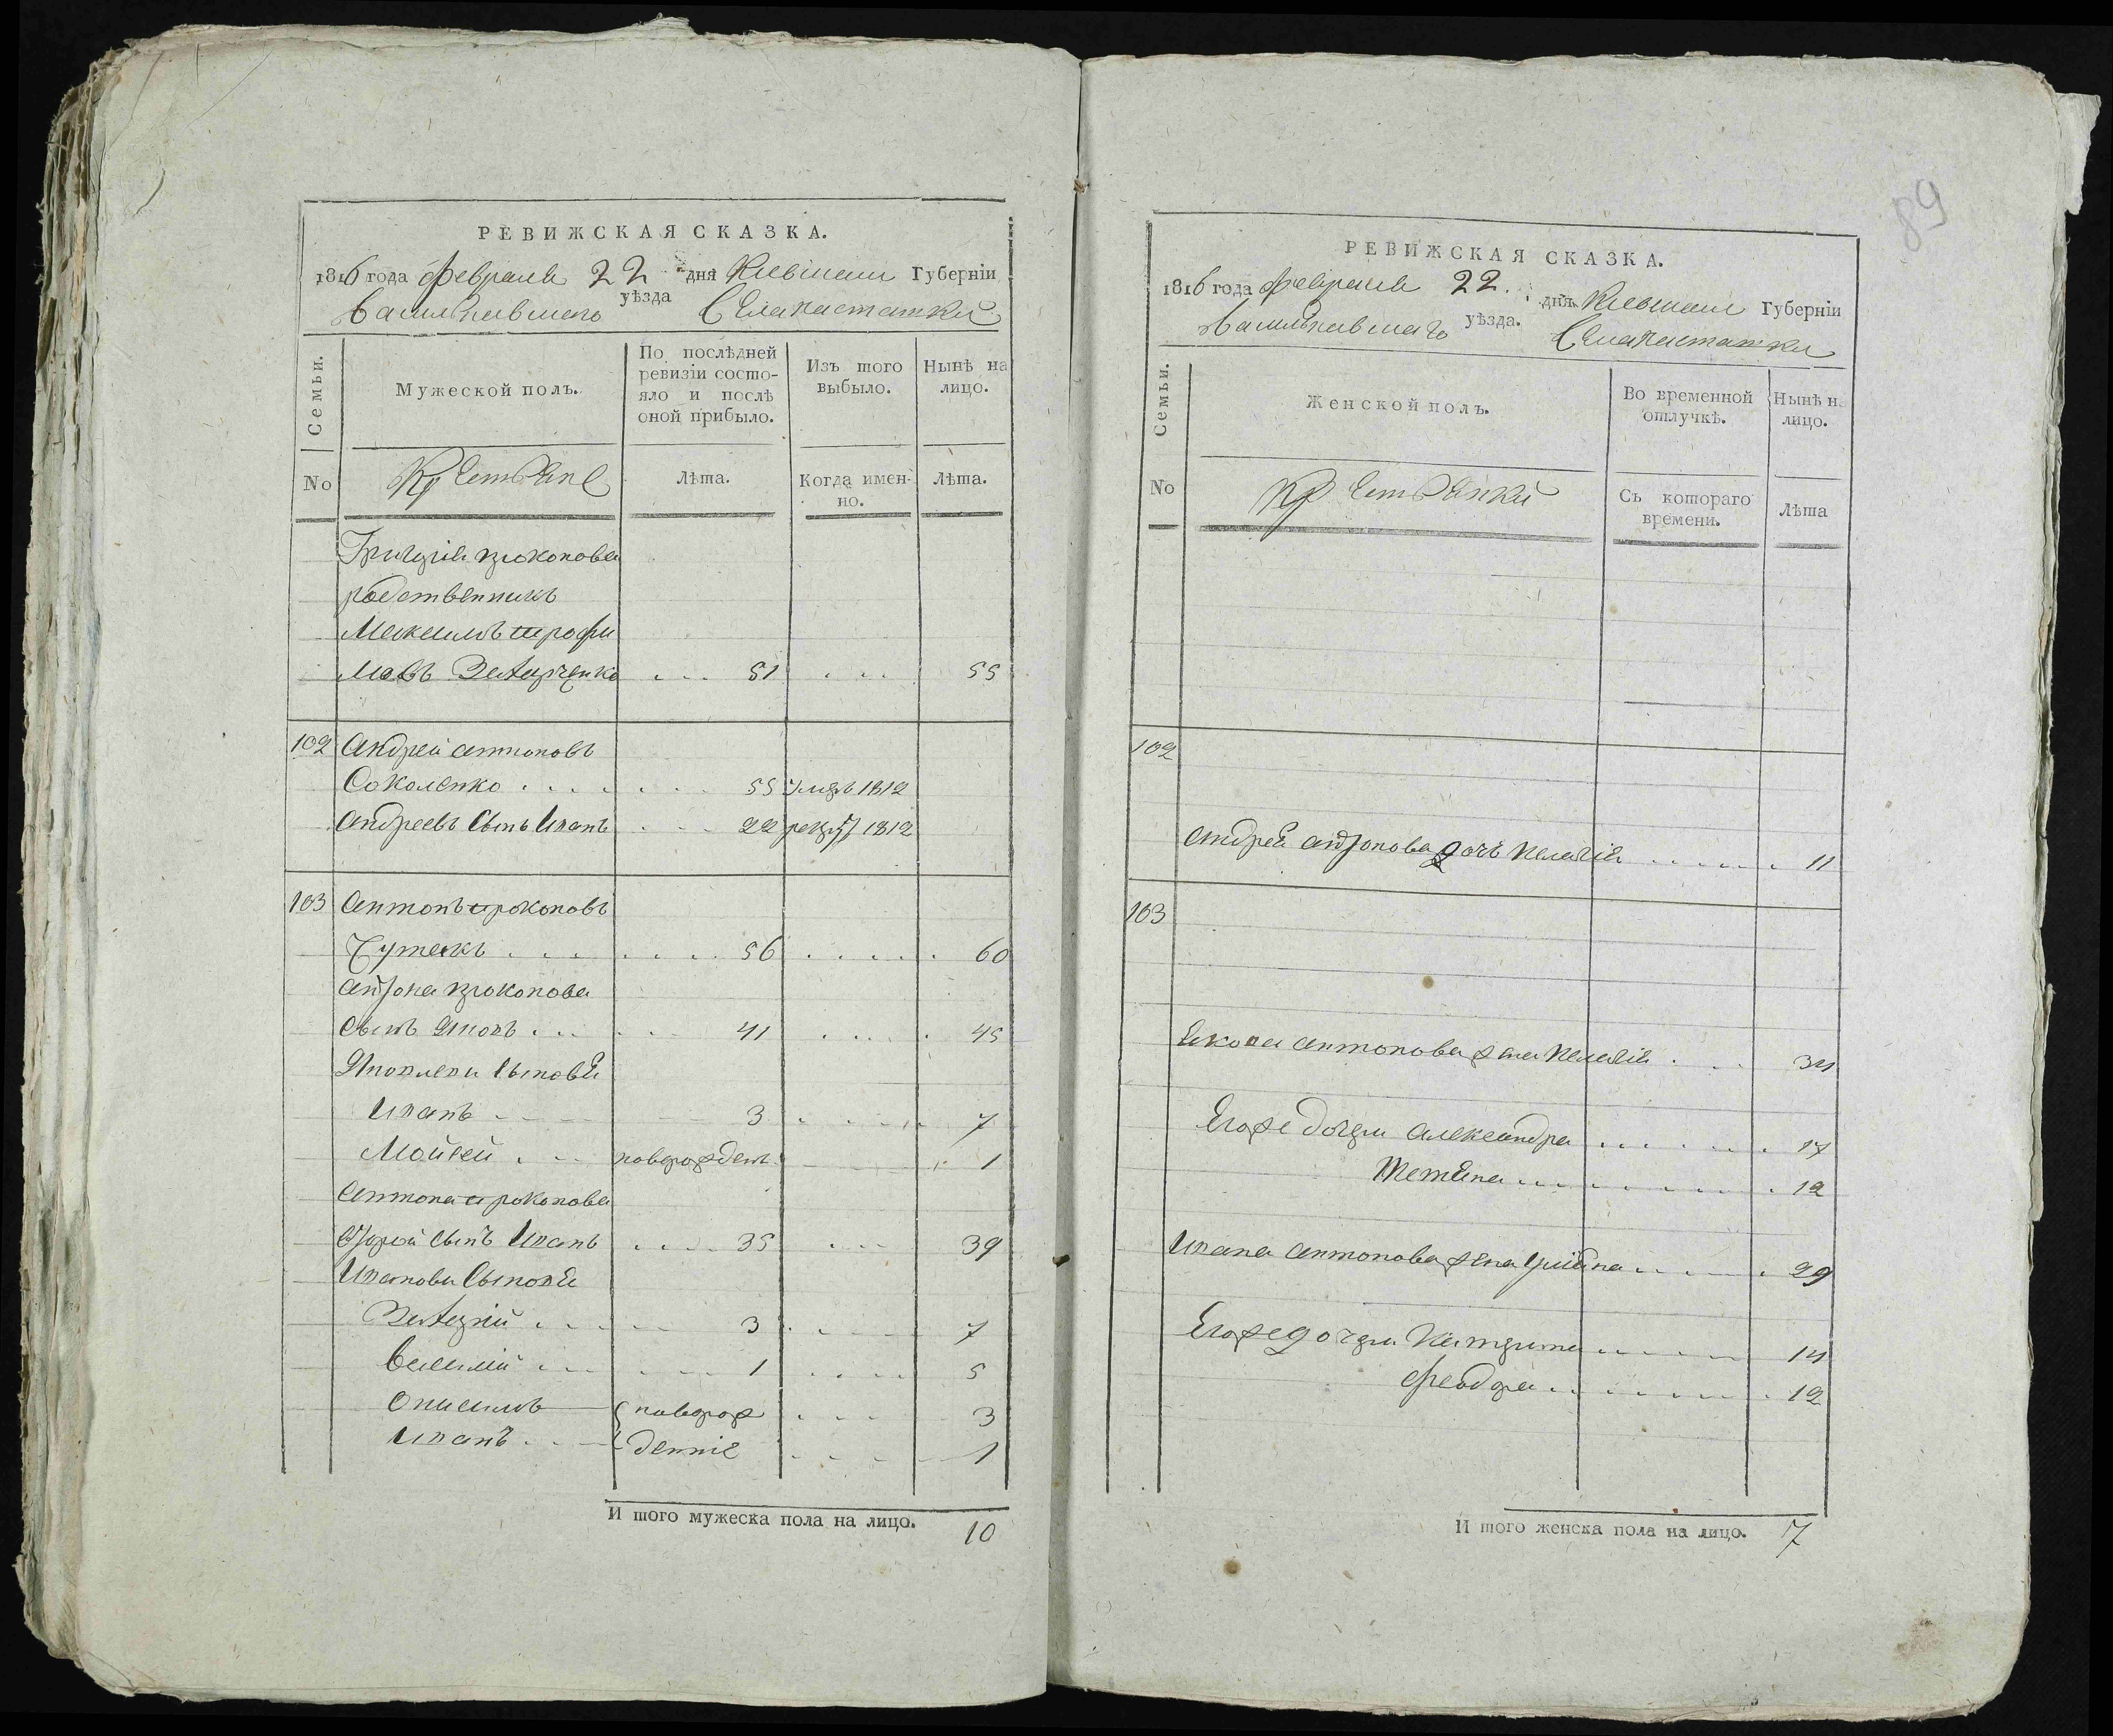 РЕВИЖСКАЯ СКАЗКА.
1816 года февраля 22 дня Кіевской Губерніи
Васильковскаго уѣзда Села пастатки
Семьи.
Мужеской полъ.
По послѣдней ревизіи состояло и послѣ оной прибыло.
Изъ того выбыло.
Нынѣ на лицо.
No
Крестьяне
Лѣта.
Когда именно.
Лѣта.
Григорія прокопова
родственникъ
Максимъ трофи
мовъ Захарченко 51 55
102 Андрей антоновъ
Соколенко 55 умеръ 1812
Андреевъ сынъ Иванъ 22 рекрут 1812
103 Антонъ прокоповъ
Гутакъ 56 60
антона прокопова
сынъ Яковъ 41 45
Яковлевы сыновья
Иванъ 3 7
Мойсей новорожден. 1
Антона прокопова
второй сынъ Иванъ 35 39
Ивановы сыновья
Захарій 3 7
василій 1 5
Онисимъ новорож 3
Иванъ денніе 1
И того мужеска пола на лицо. 10
89
РЕВИЖСКАЯ СКАЗКА.
1816 года февраля 22 дня Кіевской Губерніи
Васильковскаго уѣзда. Села пастатки
Семьи.
Женской полъ.
Во временной отлучкѣ.
Нынѣ на лицо.
No
Крестьянки
Съ котораго времени.
Лѣта
102
Андрея антонова дочь Пелагія 11
103
Якова антонова жена Пелагія 34
Егоже дочери александра 17
Татьяна 12
Ивана антонова жена 29
Егоже дочери 14
Феодора 12
И того женска пола на лицо. 7